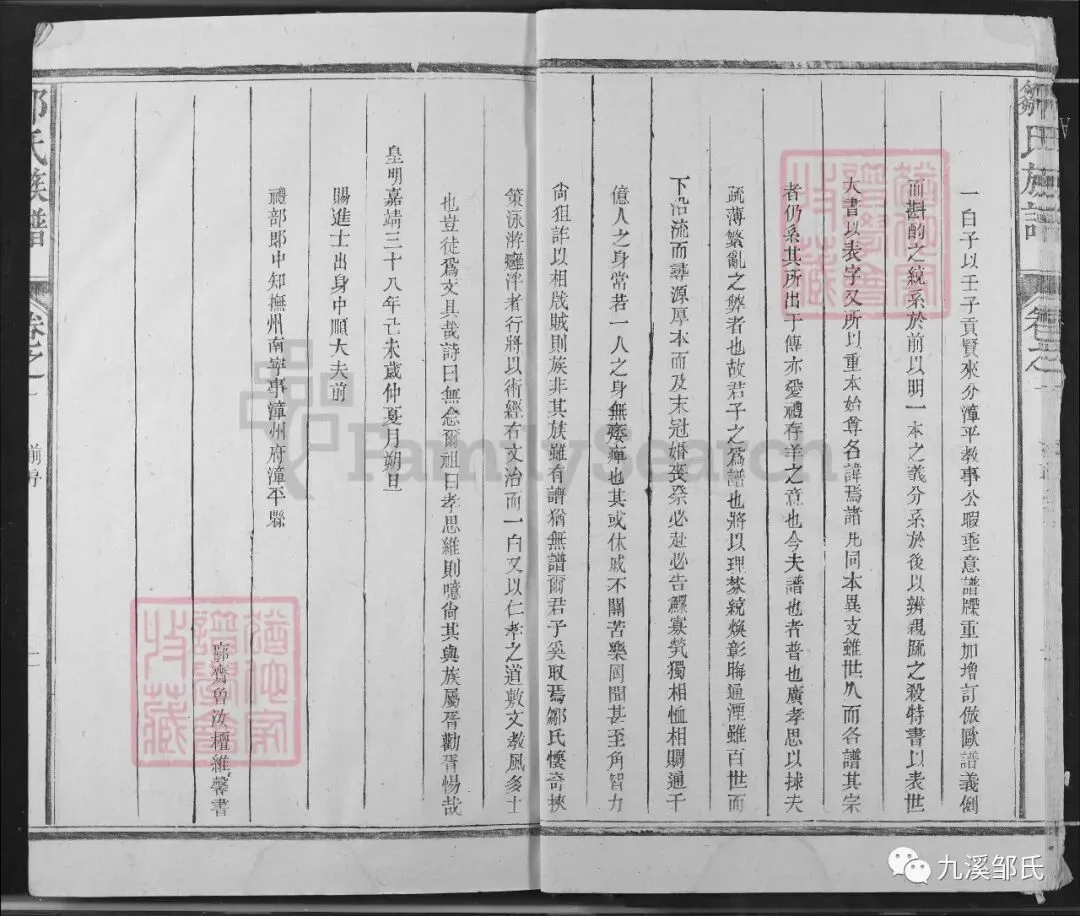 鄒氏族譜
卷之一
一白子以壬子貢賢來分漳平教事公暇垂意譜牒重加增訂倣歐譜義例
而斟酌之統系於前以明一本之義分系於後以辨親疏之殺特書以表世
大書以表字又所以重本始尊名諱焉諸凡同本異支雖世久而各譜其宗
者仍系其所出于傳亦愛禮存羊之意也今夫譜也者普也廣孝思以捄夫
疏薄繁亂之弊者也故君子之爲譜也將以理棼統煥彰晦通湮雖百世而
下沿流而尋源厚本而及末冠婚喪祭必赴必告鰥寡煢獨相恤相賙通千
億人之身常若一人之身無痿痺也其或休戚不關苦樂罔聞甚至角智力
尙狙詐以相戕賊則族非其族雖有譜猶無譜爾君子奚取焉鄒氏懷奇挾
策泳游癰泮者行將以術經右文治而一白又以仁孝之道敷文教風多士
也豈徒爲文具哉詩曰無念爾祖曰孝思維則噫尙其與族屬胥勸胥惕哉
皇明嘉靖三十八年己未歲仲夏月朔旦
賜進士出身中順大夫前
禮部郎中知撫州南寧事漳州府漳平縣
廓齋曾汝檀維馨書
鄒氏族譜
卷之一
前序
二
FamilySearch
九溪邹氏